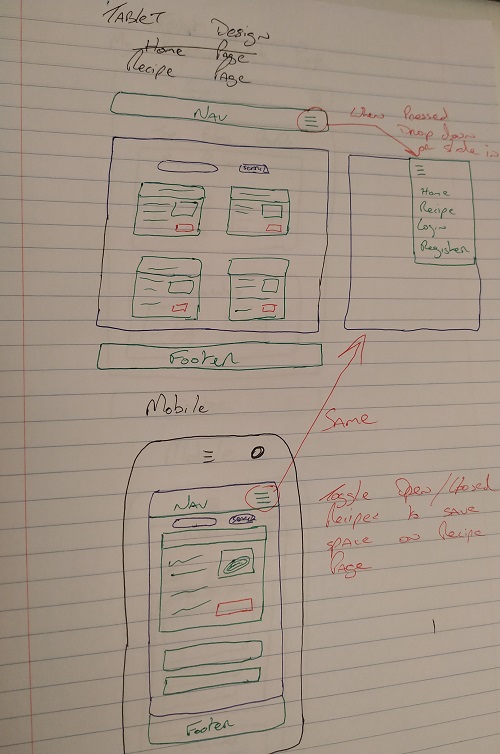 TABLET Design
Home Page
Recipe Page
NAV
When Pressed
Drop down
or slide in
Home
Recipe
Login
Register
Search
Footer
Mobile
SAME
NAV
Search
Toggle Open/Closed
Recipes to save
space on Recipe
Page
Footer